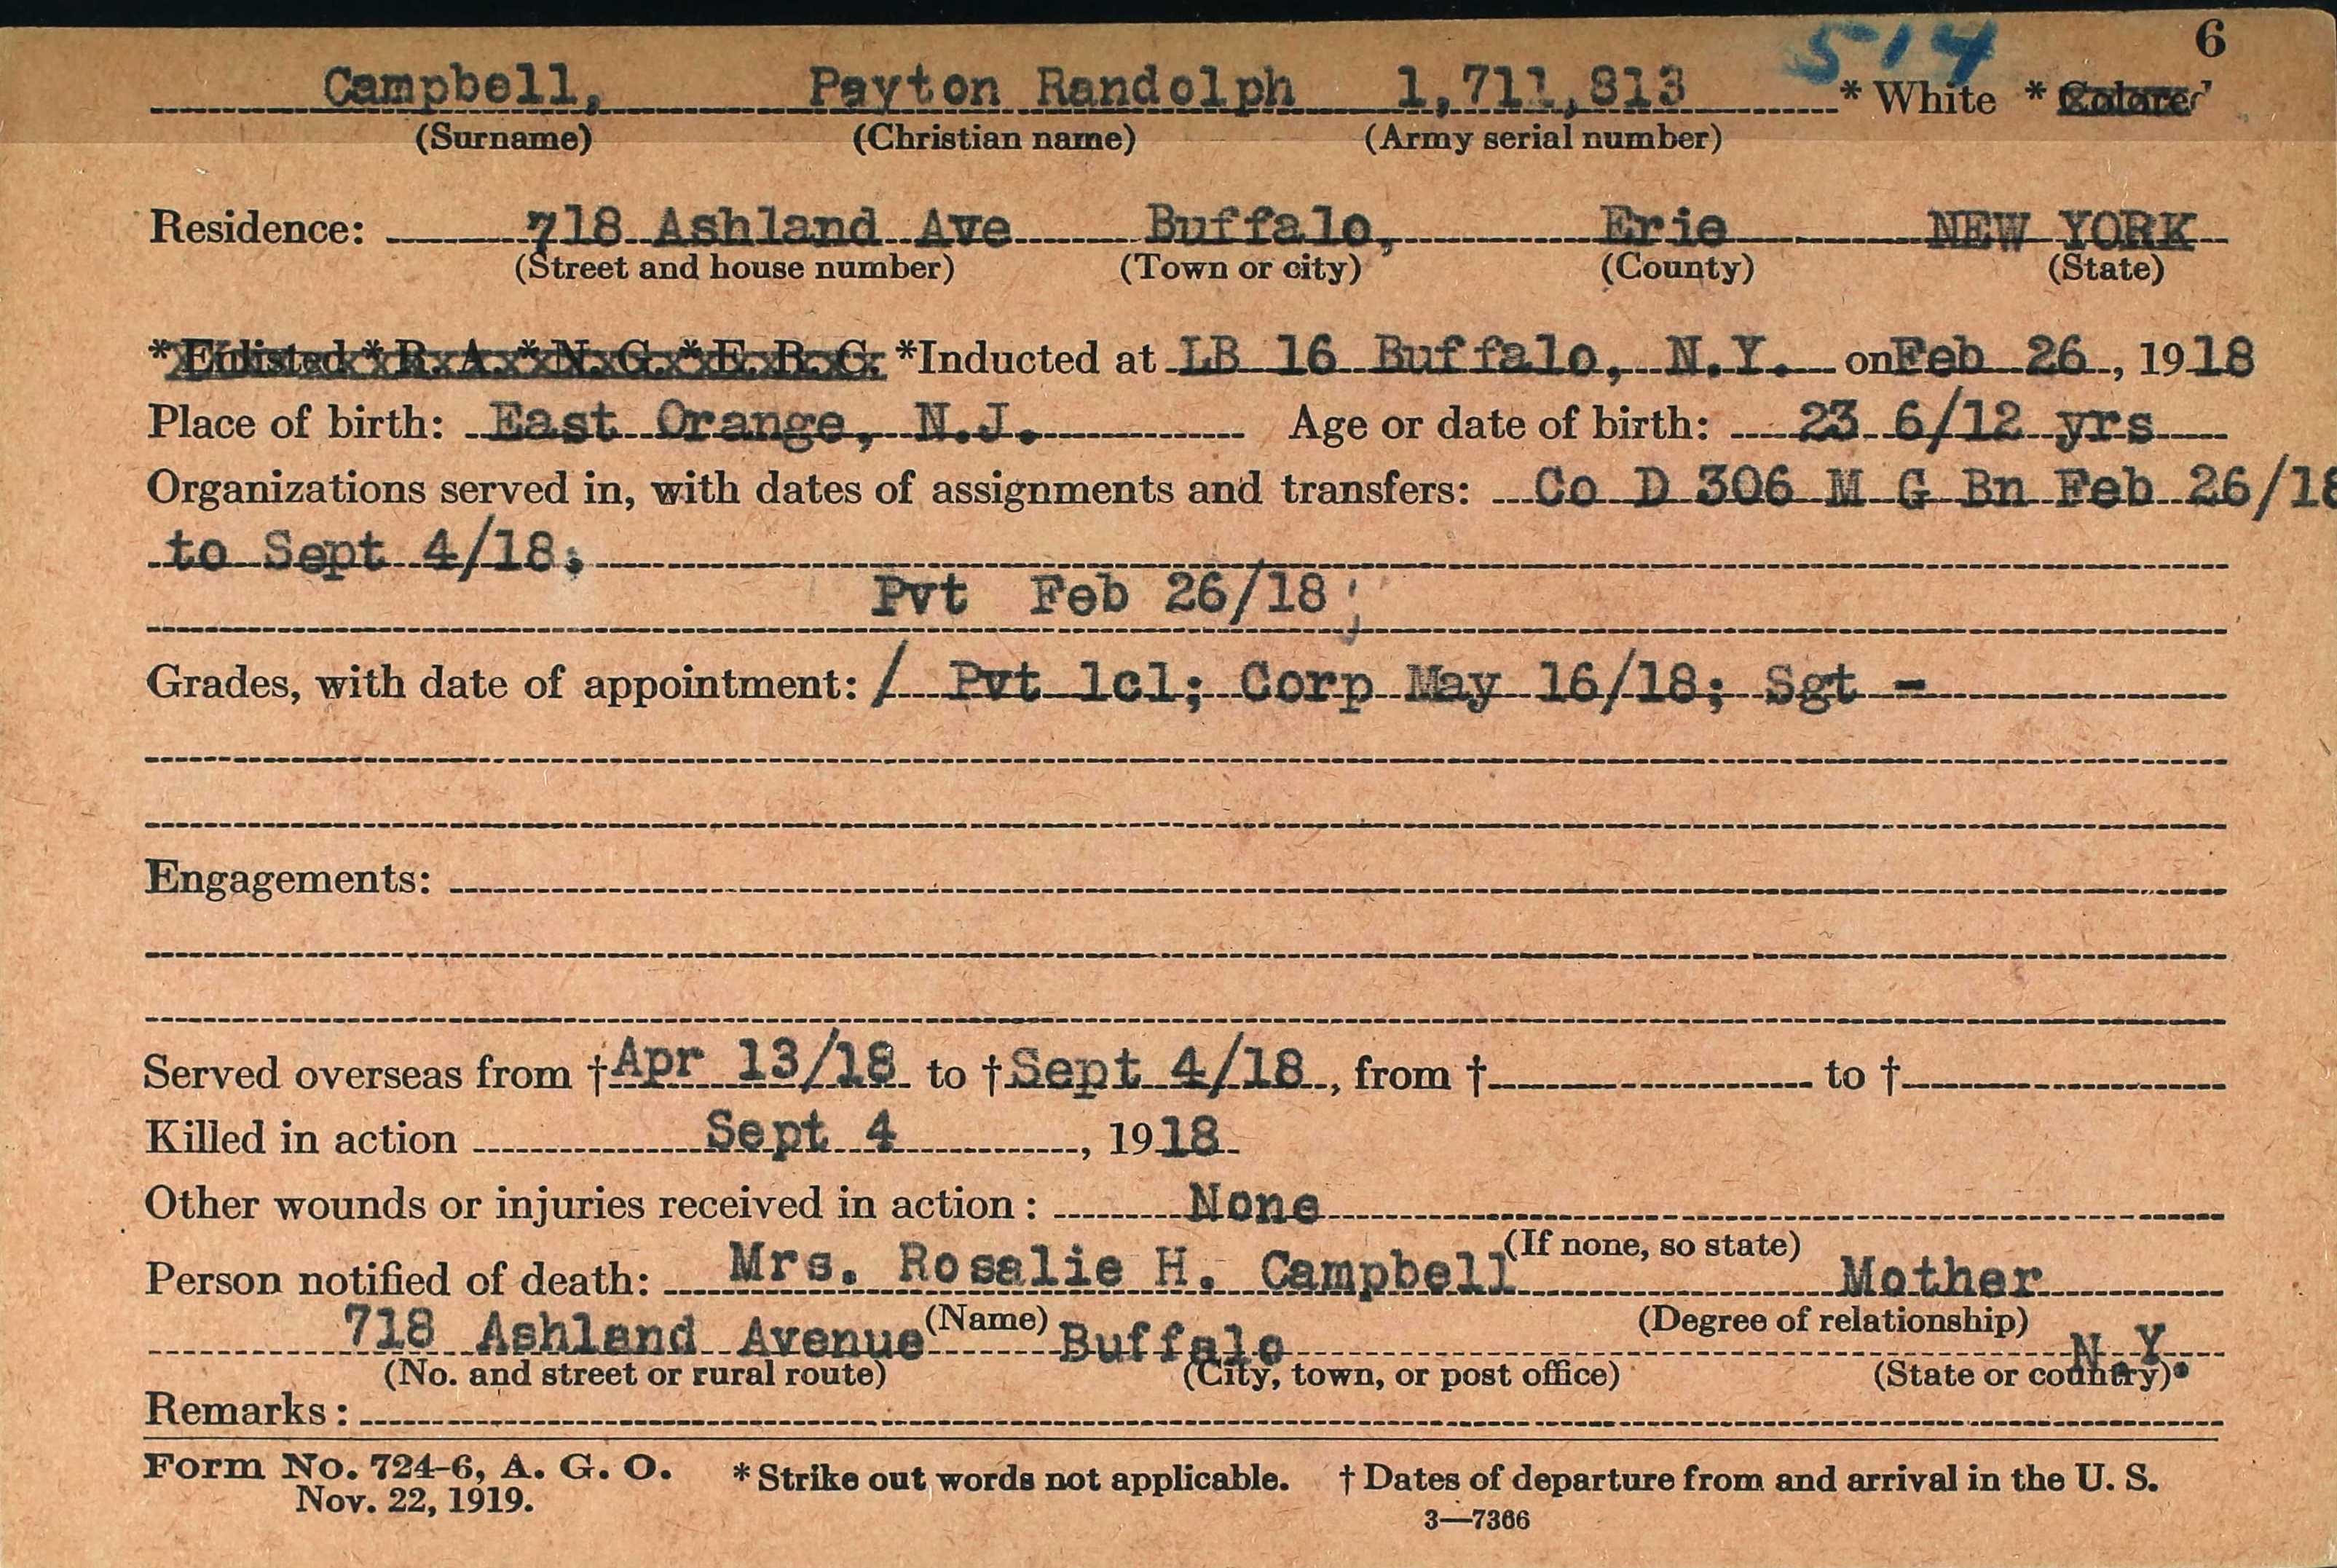 514 6
Campbell, Payton Randolph 1,711,813 * White * Colored
(Surname) (Christian name) (Army serial number)
Residence: 718 Ashland Ave Buffalo, Erie NEW YORK
(Street and house number) (Town or city) (County) (State)
* Enlisted * R. A. * N. G. * E. R. C. *Inducted at LB 16 Buffalo, N.Y. on Feb 26, 1918
Place of birth: East Orange, N.J. Age or date of birth: 23 6/12 yrs
Organizations served in, with dates of assignments and transfers: Co D 306 M G Bn Feb 26/18
to Sept 4/18;
Pvt Feb 26/18;
Grades, with date of appointment: / Pvt 1cl; Corp May 16/18; Sgt -
Engagements:
Served overseas from † Apr 13/18 to † Sept 4/18, from † to †
Killed in action Sept 4, 1918
Other wounds or injuries received in action: None
(If none, so state)
Person notified of death: Mrs. Rosalie H. Campbell Mother
(Name) (Degree of relationship)
718 Ashland Avenue Buffalo N.Y.
(No. and street or rural route) (City, town, or post office) (State or country)
Remarks:
Form No. 724-6, A. G. O. * Strike out words not applicable. † Dates of departure from and arrival in the U. S.
Nov. 22, 1919.
3—7366